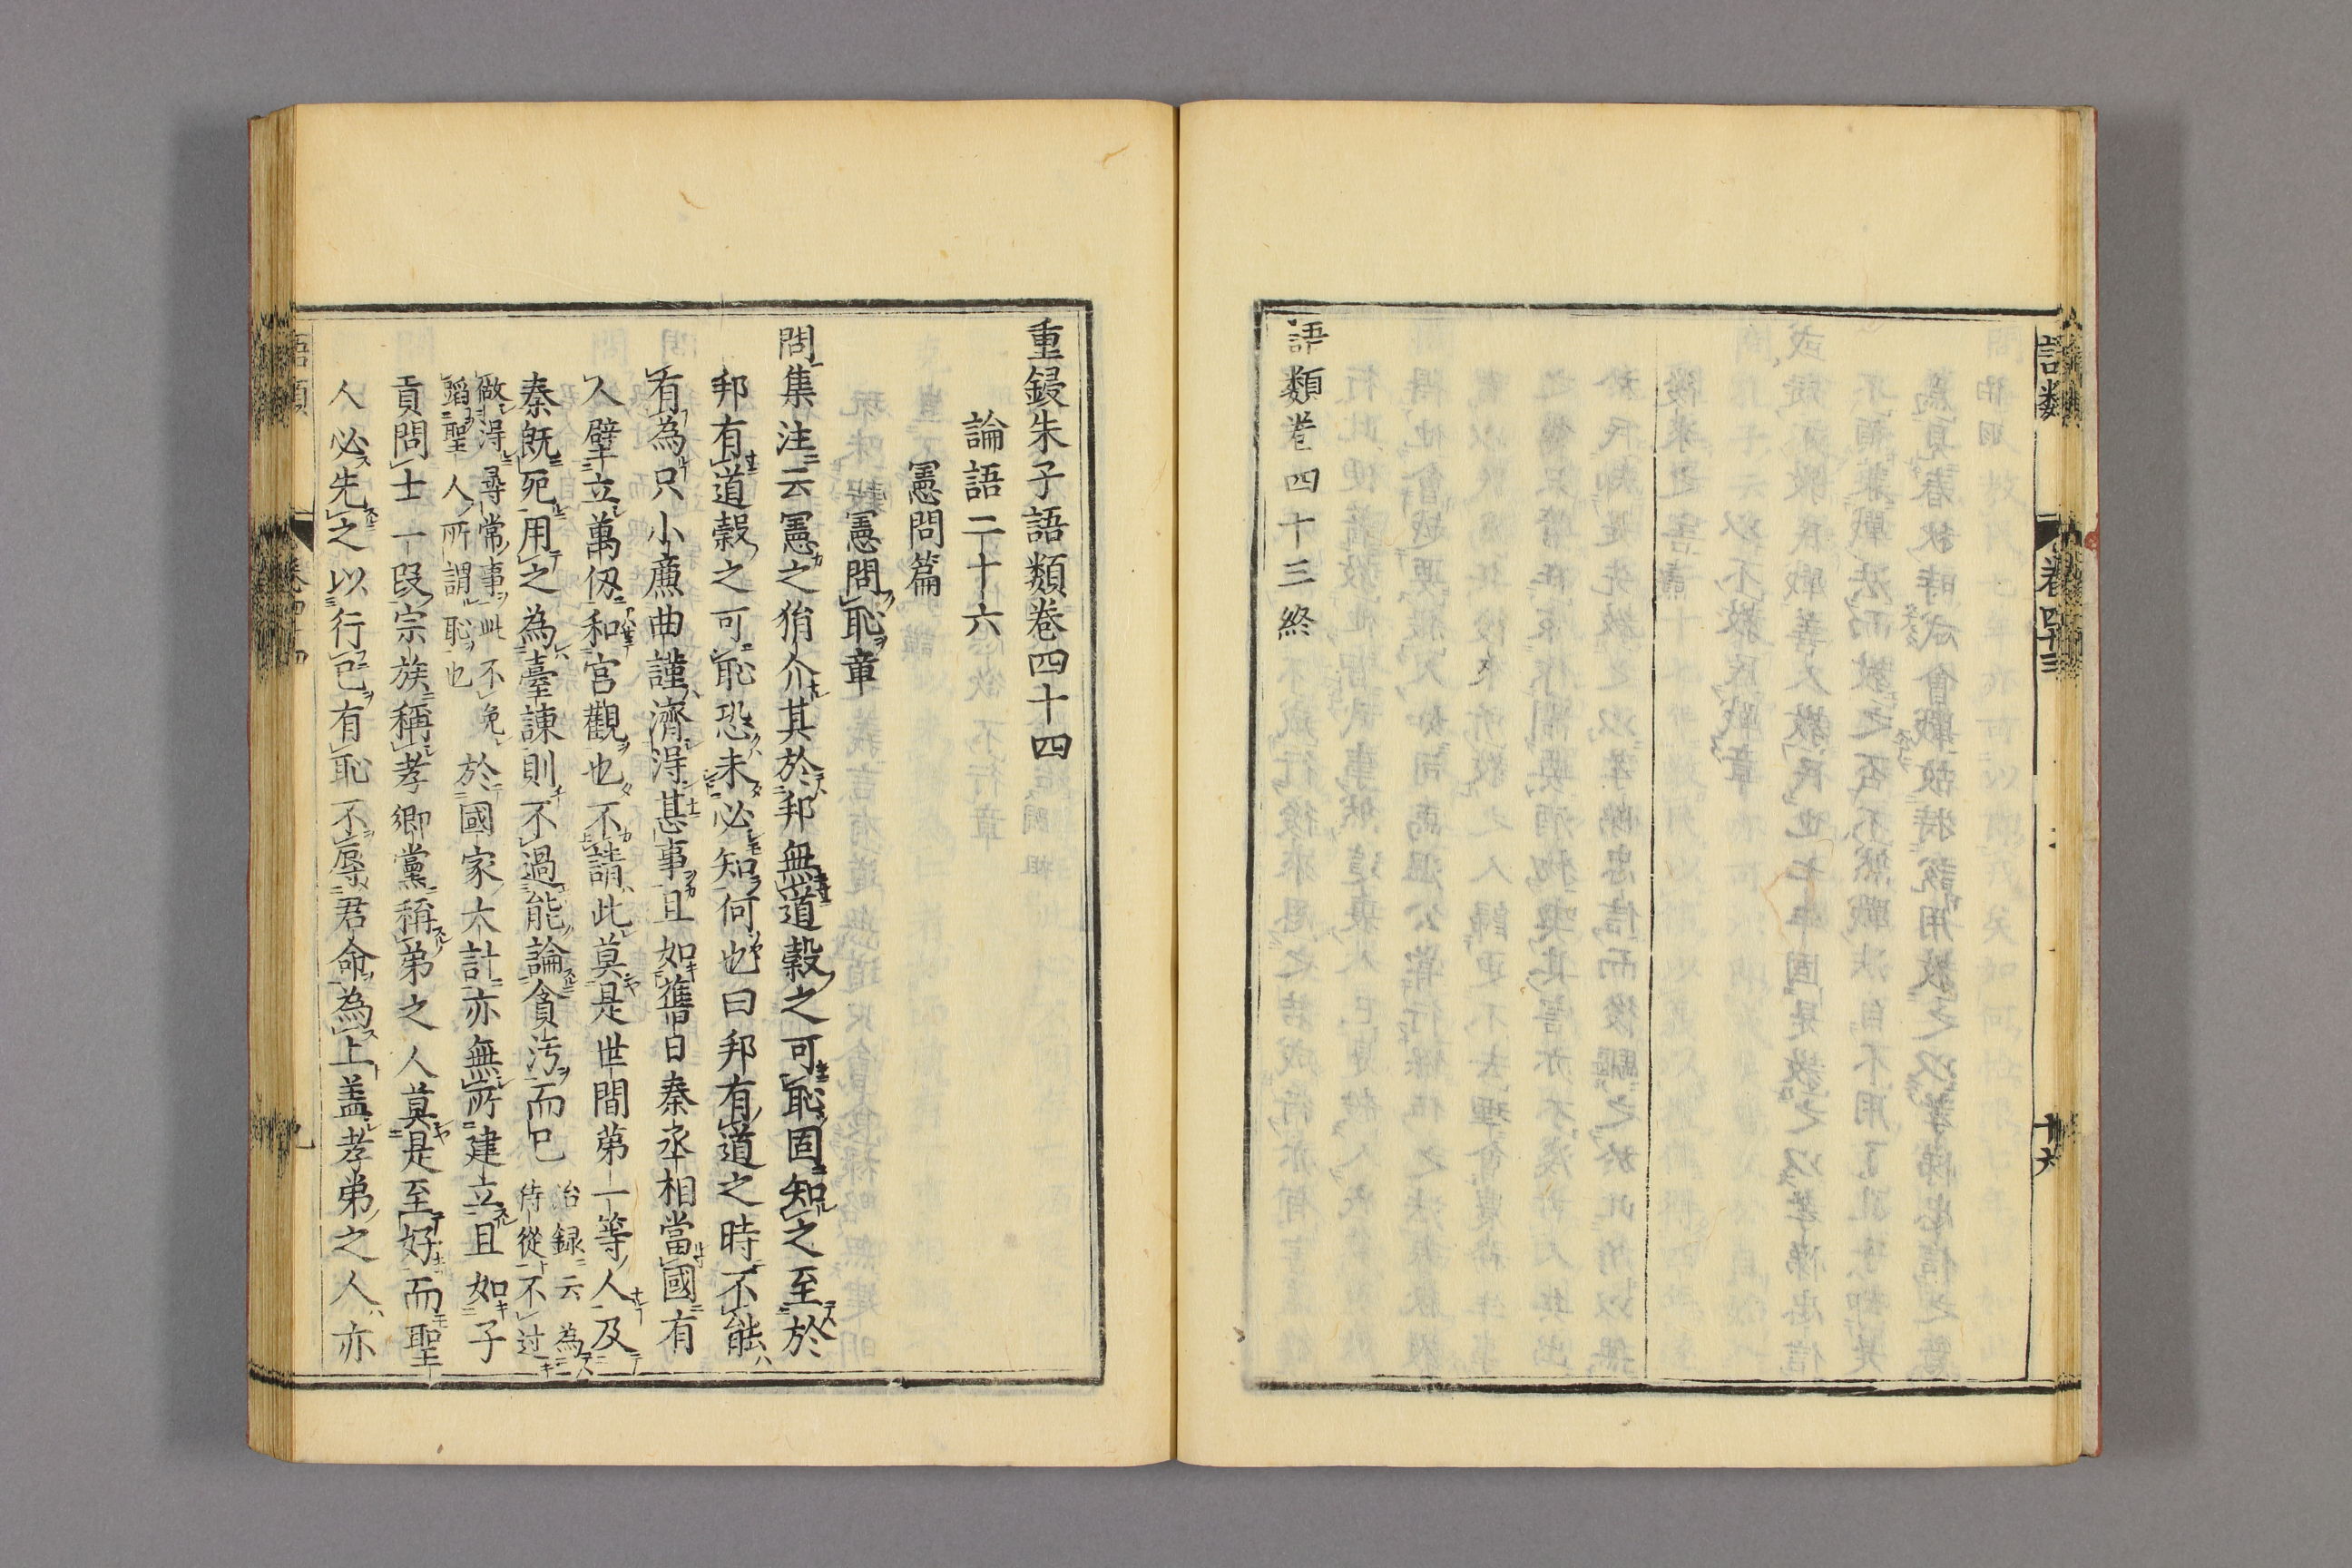 語類卷四十三終
語類 卷四十三 十六
重鋟朱子語類卷四十四
論語二十六
憲問篇
憲問恥章
問集注云憲之狷介其於邦無道穀之可恥固知之至於
邦有道穀之可恥恐未必知何也曰邦有道之時不能
有為只小亷曲謹濟得甚事且如舊日秦丞相當國有
人壁立萬仭和宮觀也不請此莫是世間第一等人及
秦旣死用之為臺諫則不過能論貪汚而已治録云為侍從不过
做淂尋常事此不免蹈聖人所謂恥也於國家大計亦無所建立且如子
貢問士一段宗族稱孝鄉黨稱弟之人莫是至好而聖
人必先之以行已有恥不辱君命為上盖孝弟之人亦